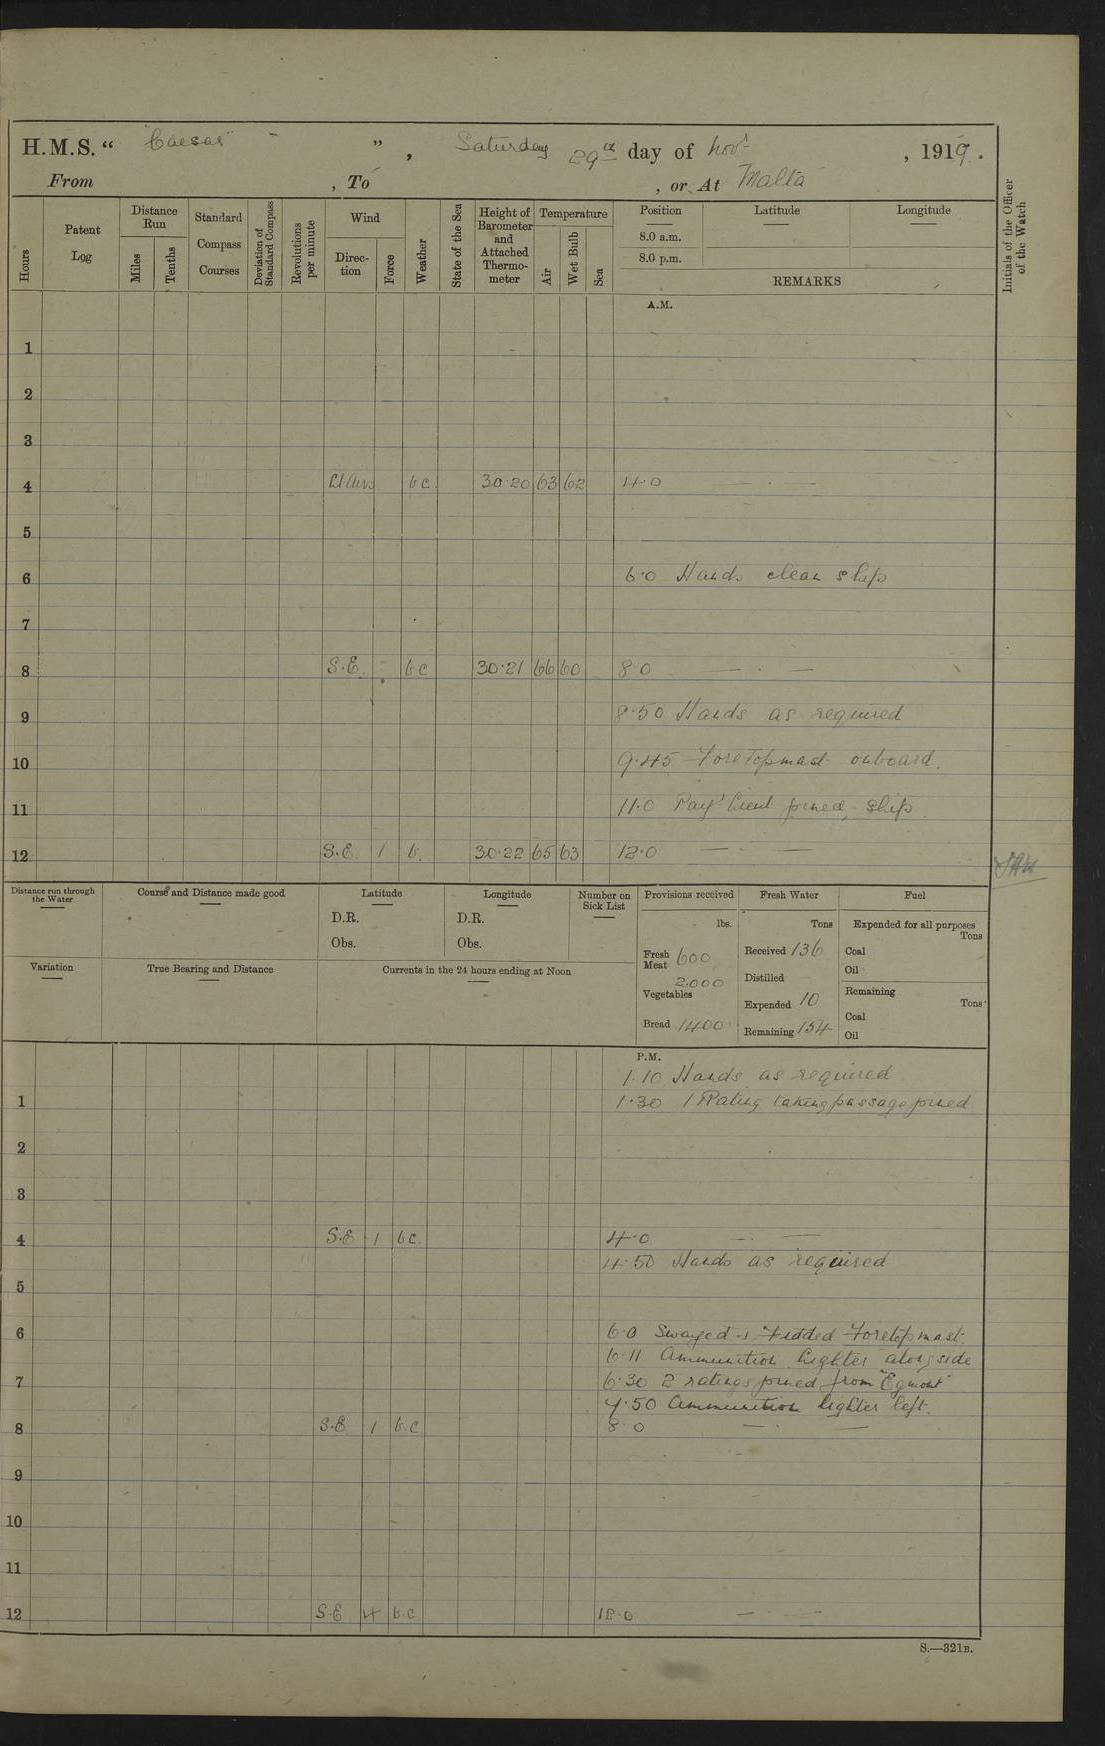 H.M.S. “ "Caesar" - ” , Saturday 29th day of Novr , 1919 .
From , To , or At Malta
Hours
Patent Log
Distance Run
Miles
Tenths
Standard Compass Courses
Deviation of Standard Compass
Revolutions per minute
Wind
Direc-tion
Force
Weather
State of the Sea
Height of Barometer and Attached Thermo-meter
Temperature
Air
Wet Bulb
Sea
Position
8.0 a.m.
8.0 p.m.
Latitude
Longitude
REMARKS
Initials of the Officer of the Watch
A.M.
1
2
3
4 Lt Airs bc 30·20 63 62 4·0 — · —
5
6 6·0 Hands clean ship
7
8 S.E. bc 30·21 66 60 8·0 — · —
9 8·50 Hands as required
10 9·45 Foretopmast onboard.
11 11·0 Pay' Lieut joined ship
12 S.E. 1 b. 30·22 65 63 12·0 — · —
Distance run through the Water
Course and Distance made good
Latitude
D.R.
Obs.
Longitude
D.R.
Obs.
Number on Sick List
Provisions received
lbs.
Fresh Meat 600
2,000
Vegetables
Bread 1400
Fresh Water
Tons
Received 136
Distilled
Expended 10
Remaining 154
Fuel
Expended for all purposes
Tons
Coal
Oil
Remaining
Tons
Coal
Oil
Variation
True Bearing and Distance
Currents in the 24 hours ending at Noon
P.M.
1·10 Hands as required
1 1·30 1 Rating taking passage joined
2
3
4 S.E 1 bc. 4·0 — · —
4·50 Hands as required
5
6 6·0 Swayed & Fidded Foretopmast.
6·11 Ammunition lighter alongside
7 6·30 2 ratings joined from "Egmont"
7·50 Ammunition lighter left.
8 S.E 1 b.c 8·0 — · —
9
10
11
12 S.E 4 b.c 12·0 — · —
S.—321B.